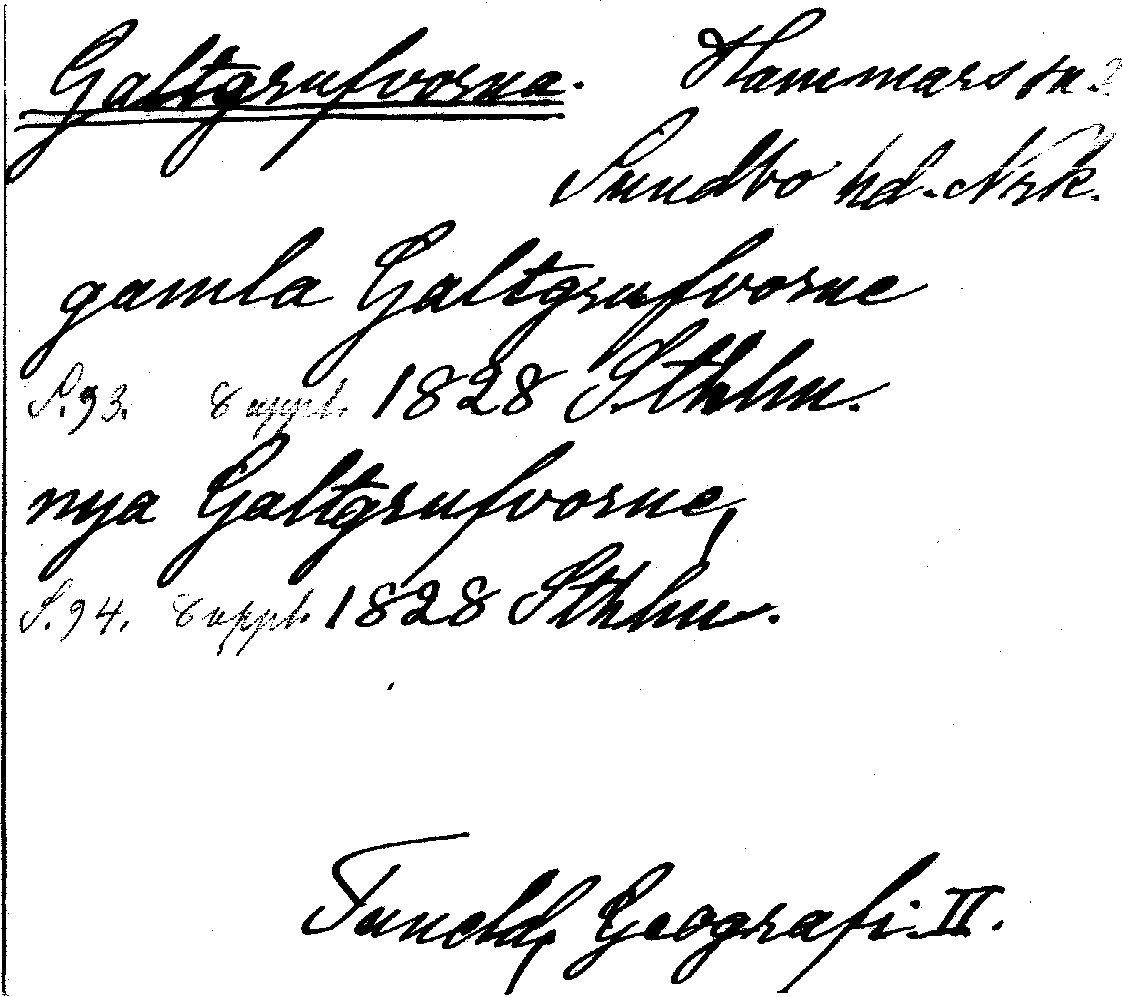 Galtgrufvorna. Hammars sn.?
Sundbo hd. Nrk.
gamla Galtgrufvorne
S.93. 8 uppl. 1828 Sthlm.
nya Galtgrufvorne,
S.94. 8 uppl. 1828 Sthlm.
Tuneld, Geografi. II.